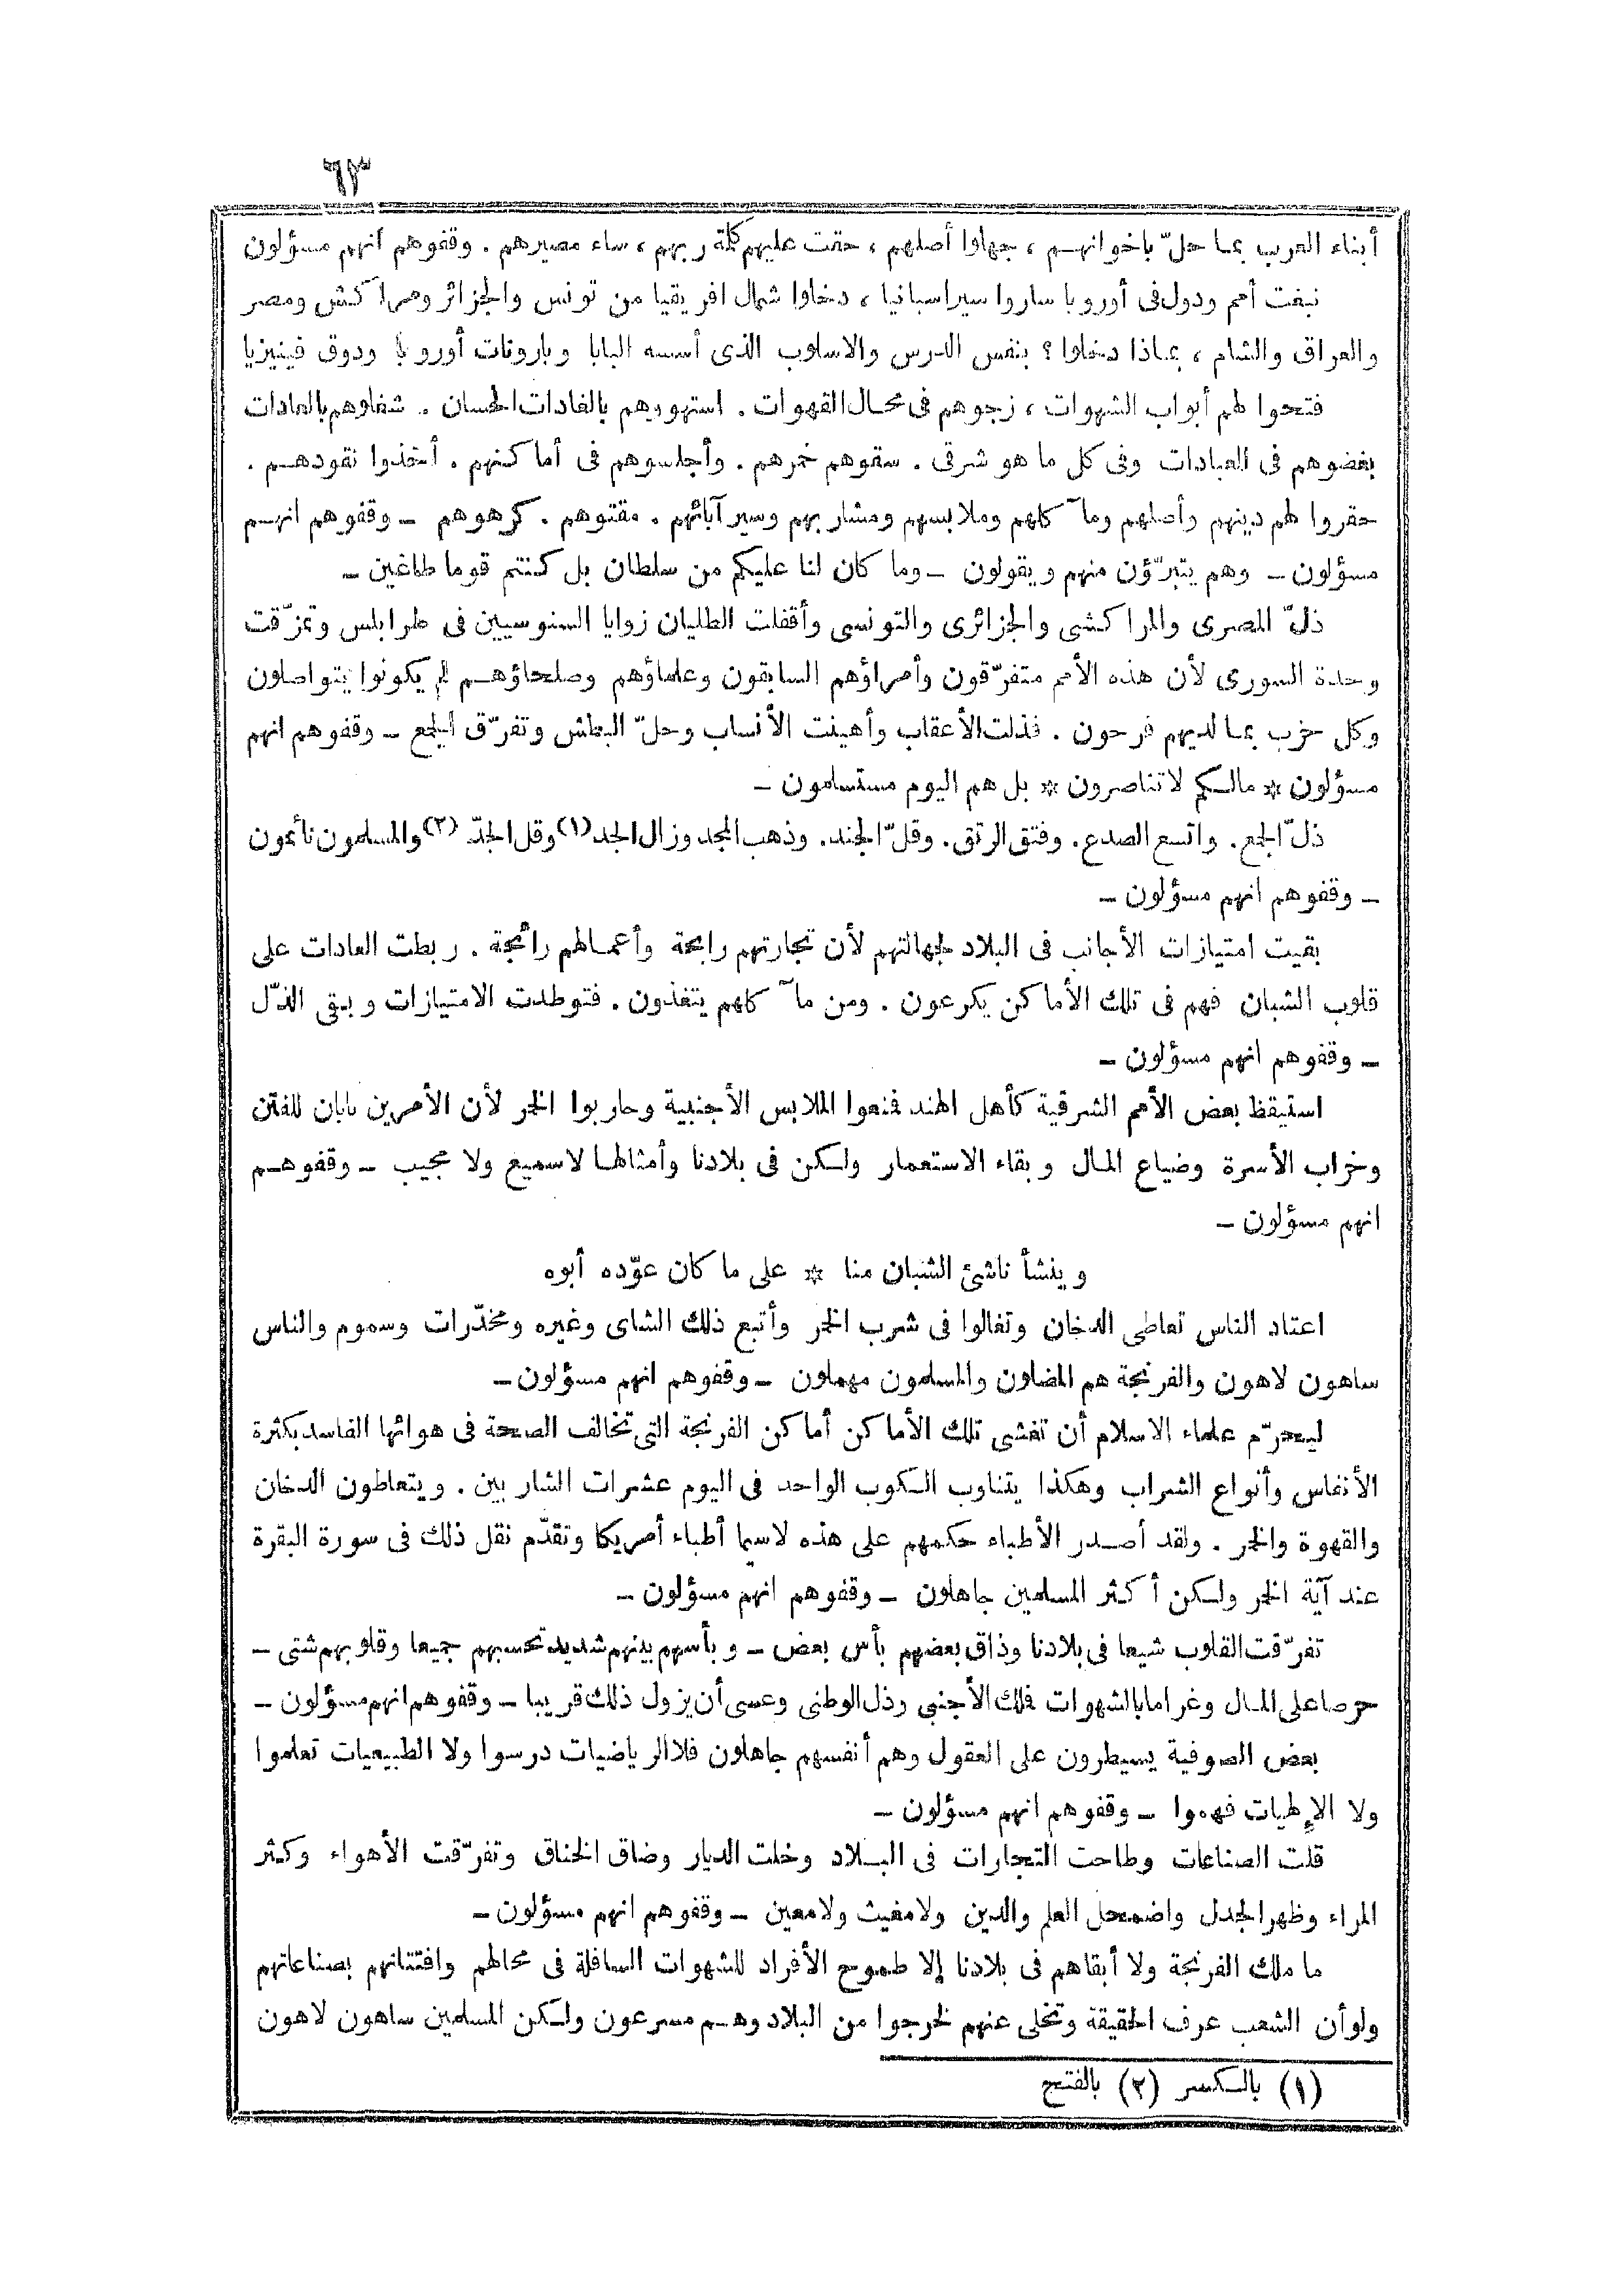 ٦٣
أبناء العرب بما حلّ باخوانهم ، جهلوا أصلهم ، حقت عليهم كلة ربهم ، ساء مصيرهم . وقفوهم انهم مسؤلون
نبغت أمم ودول فى أوروبا ساروا سير اسبانيا ، دخلوا شمال افريقيا من تونس والجزائر ومراكش ومصر
والعراق والشام ، بماذا دخلوا ؟ بنفس الدرس والاسلوب الذى أسسه البابا وبارونات أوروبا ودوق فينيزيا
فتحوا لهم أبواب الشهوات ، زجوهم فى محال القهوات . استهووهم بالغادات الحسان . شغلوهم بالعادات
بغضوهم فى العبادات وفى كل ما هو شرقى . سقوهم خمرهم . وأجلسوهم فى أماكنهم . أخذوا نقودهم .
حقروا لهم دينهم وأصلهم ومآكلهم وملابسهم ومشاربهم وسير آبائهم . مقتوهم . كرهوهم ــ وقفوهم انهم
مسؤلون ــ وهم يتبرّؤن منهم ويقولون ــ وما كان لنا عليكم من سلطان بل كنتم قوما طاغين ــ
ذلّ المصرى والمراكشى والجزائرى والتونسى وأقفلت الطليان زوايا السنوسيين فى طرابلس وتمزّقت
وحدة السورى لأن هذه الأمم متفرّقون وأمراؤهم السابقون وعلماؤهم وصلحاؤهم لم يكونوا يتواصلون
وكل حزب بما لديهم فرحون . فذلت الأعقاب وأهينت الأنساب وحلّ البطش وتفرّق الجمع ــ وقفوهم انهم
مسؤلون * مالكم لاتناصرون * بل هم اليوم مستسلمون ــ
ذلّ الجمع . واتسع الصدع . وفتق الرتق . وقلّ الجند . وذهب المجد وزال الجد (١) وقل الجدّ (٢) والمسلمون نائمون
ــ وقفوهم انهم مسؤلون ــ
بقيت امتيازات الأجانب فى البلاد لجهالتهم لأن تجارتهم رابحة وأعمالهم رائجة . ربطت العادات على
قلوب الشبان فهم فى تلك الأماكن يكرعون . ومن مآكلهم يتغذون . فتوطدت الامتيازات وبقى الذّل
ــ وقفوهم انهم مسؤلون ــ
استيقظ بعض الأمم الشرقية كأهل الهند فمنعوا الملابس الأجنبية وحاربوا الخمر لأن الأمرين بابان للفتن
وخراب الأسرة وضياع المال وبقاء الاستعمار ولكن فى بلادنا وأمثالها لاسميع ولا مجيب ــ وقفوهم
انهم مسؤلون ــ
وينشأ ناشئ الشبان منا * على ما كان عوّده أبوه
اعتاد الناس تعاطى الدخان وتغالوا فى شرب الخمر وأتبع ذلك الشاى وغيره ومخدّرات وسموم والناس
ساهون لاهون والفرنجة هم المضلون والمسلمون مهملون ــ وقفوهم انهم مسؤلون ــ
ليحرّم علماء الاسلام أن تغشى تلك الأماكن أماكن الفرنجة التى تخالف الصحة فى هوائها الفاسد بكثرة
الأنفاس وأنواع الشراب وهكذا يتناوب الكوب الواحد فى اليوم عشرات الشاربين . ويتعاطون الدخان
والقهوة والخمر . ولقد أصدر الأطباء حكمهم على هذه لاسيما أطباء أمريكا وتقدّم نقل ذلك فى سورة البقرة
عند آية الخمر ولكن أكثر المسلمين جاهلون ــ وقفوهم انهم مسؤلون ــ
تفرّقت القلوب شيعا فى بلادنا وذاق بعضهم بأس بعض ــ وبأسهم بينهم شديد تحسبهم جميعا وقلوبهم شتى ــ
حرصا على المال وغراما بالشهوات فملك الأجنبي وذل الوطنى وعسى أن يزول ذلك قريبا ــ وقفوهم انهم مسؤلون ــ
بعض الصوفية يسيطرون على العقول وهم أنفسهم جاهلون فلا الرياضيات درسوا ولا الطبيعيات تعلموا
ولا الإلهيات فهموا ــ وقفوهم انهم مسؤلون ــ
قلت الصناعات وطاحت التجارات فى البلاد وخلت الديار وضاق الخناق وتفرّقت الأهواء وكثر
المراء وظهر الجدل واضمحل العلم والدين ولامغيث ولامعين ــ وقفوهم انهم مسؤلون ــ
ما ملك الفرنجة ولا أبقاهم فى بلادنا إلا طموح الأفراد للشهوات السافلة فى محالهم وافتتانهم بصناعاتهم
ولو أن الشعب عرف الحقيقة وتخلى عنهم لخرجوا من البلاد وهم مسرعون ولكن المسلمين ساهون لاهون
(١) بالكسر (٢) بالفتح